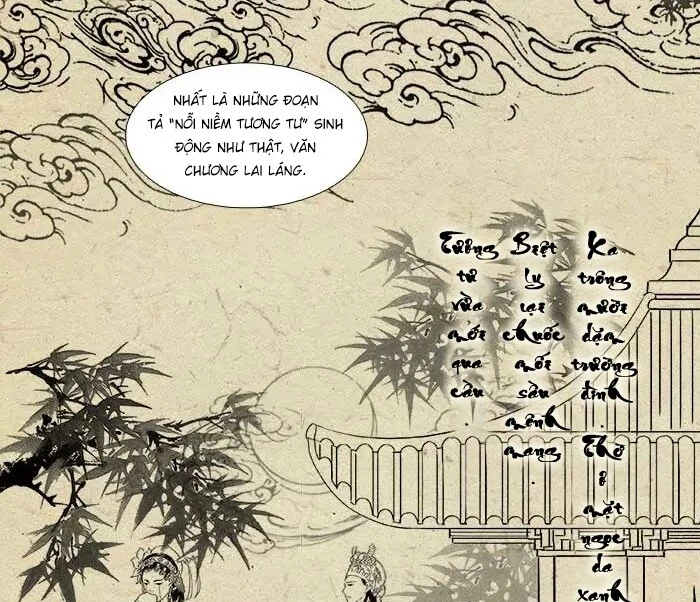 NHẤT LÀ NHỮNG ĐOẠN
TẢ "NỖI NIỀM TƯƠNG TƯ" SINH
ĐỘNG NHƯ THẬT, VĂN
CHƯƠNG LAI LÁNG.
Tương tư vừa mới qua cầu
Biệt ly lại chuốc mối sầu mênh mang
Xa trông mười dặm trường đình
mặt ngọc da xanh